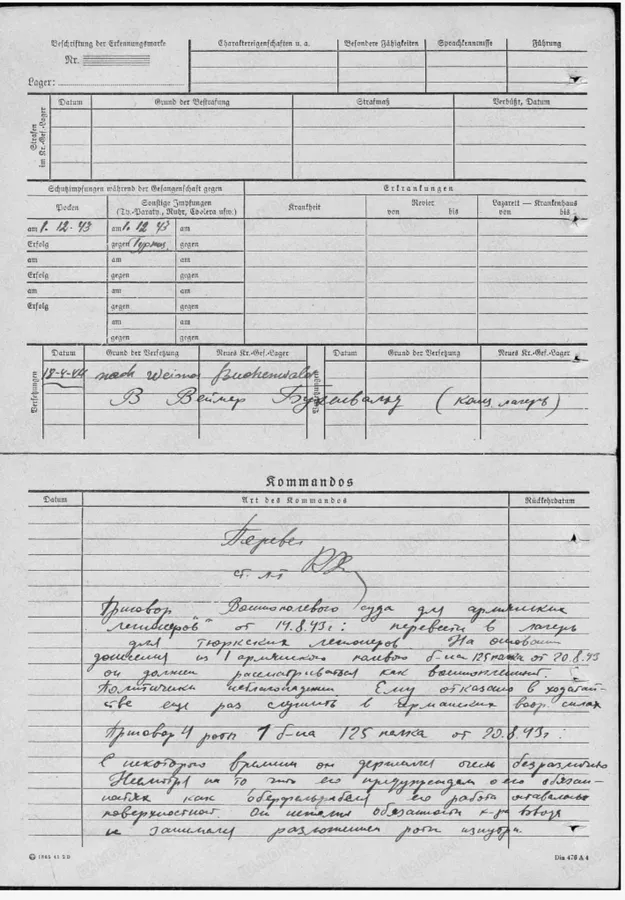 Beschriftung der Erkennungsmarke
Nr.
Lager:
Charaktereigenschaften u. a.
Besondere Fähigkeiten
Sprachkenntnisse
Führung
Strafen im Kr.-Gef.-Lager
Datum
Grund der Bestrafung
Strafmaß
Verbüßt, Datum
Schutzimpfungen während der Gefangenschaft gegen
Erkrankungen
Pocken
Sonstige Impfungen
(Ty.-Paraty., Ruhr, Cholera usw.)
Krankheit
Revier
von bis
Lazarett — Krankenhaus
von bis
am 1. 12. 43 am 1. 12 43 am
Erfolg gegen gegen
am am am
Erfolg gegen gegen
am am am
Erfolg gegen gegen
am am
gegen gegen
Versetzungen
Datum Grund der Versetzung Neues Kr.-Gef.-Lager
Versetzungen
Datum Grund der Versetzung Neues Kr.-Gef.-Lager
18-4-44 nach Weimar Buchenwald
В Веймар Бухенвальд (конц. лагерь)
Kommandos
Datum Art des Kommandos Rückkehrdatum
Перевел
ст. л-т
Приговор суда для армянских
легионеров" от 14.8.43г: перевести в лагерь
для тюркских легионеров На основании
донесения из 1 армянского полевого б-на 125 полка от 20.8.43
он должен рассматриваться как военнопленный.
Политически неблагонадежен Ему отказано в ходатай-
стве еще раз служить в армянских воор. силах
Приговор 4 роты 1 б-на 125 полка от 20.8.43г:
С некоторого времени он держался очень безразлично
Несмотря на то что его предупреждали о его обязан-
ностях как оберфельдфебеля его работа оставалась
поверхностной. Он обязанности к-ра взвода
и занимался разложением роты изнутри
Din 476 A 4